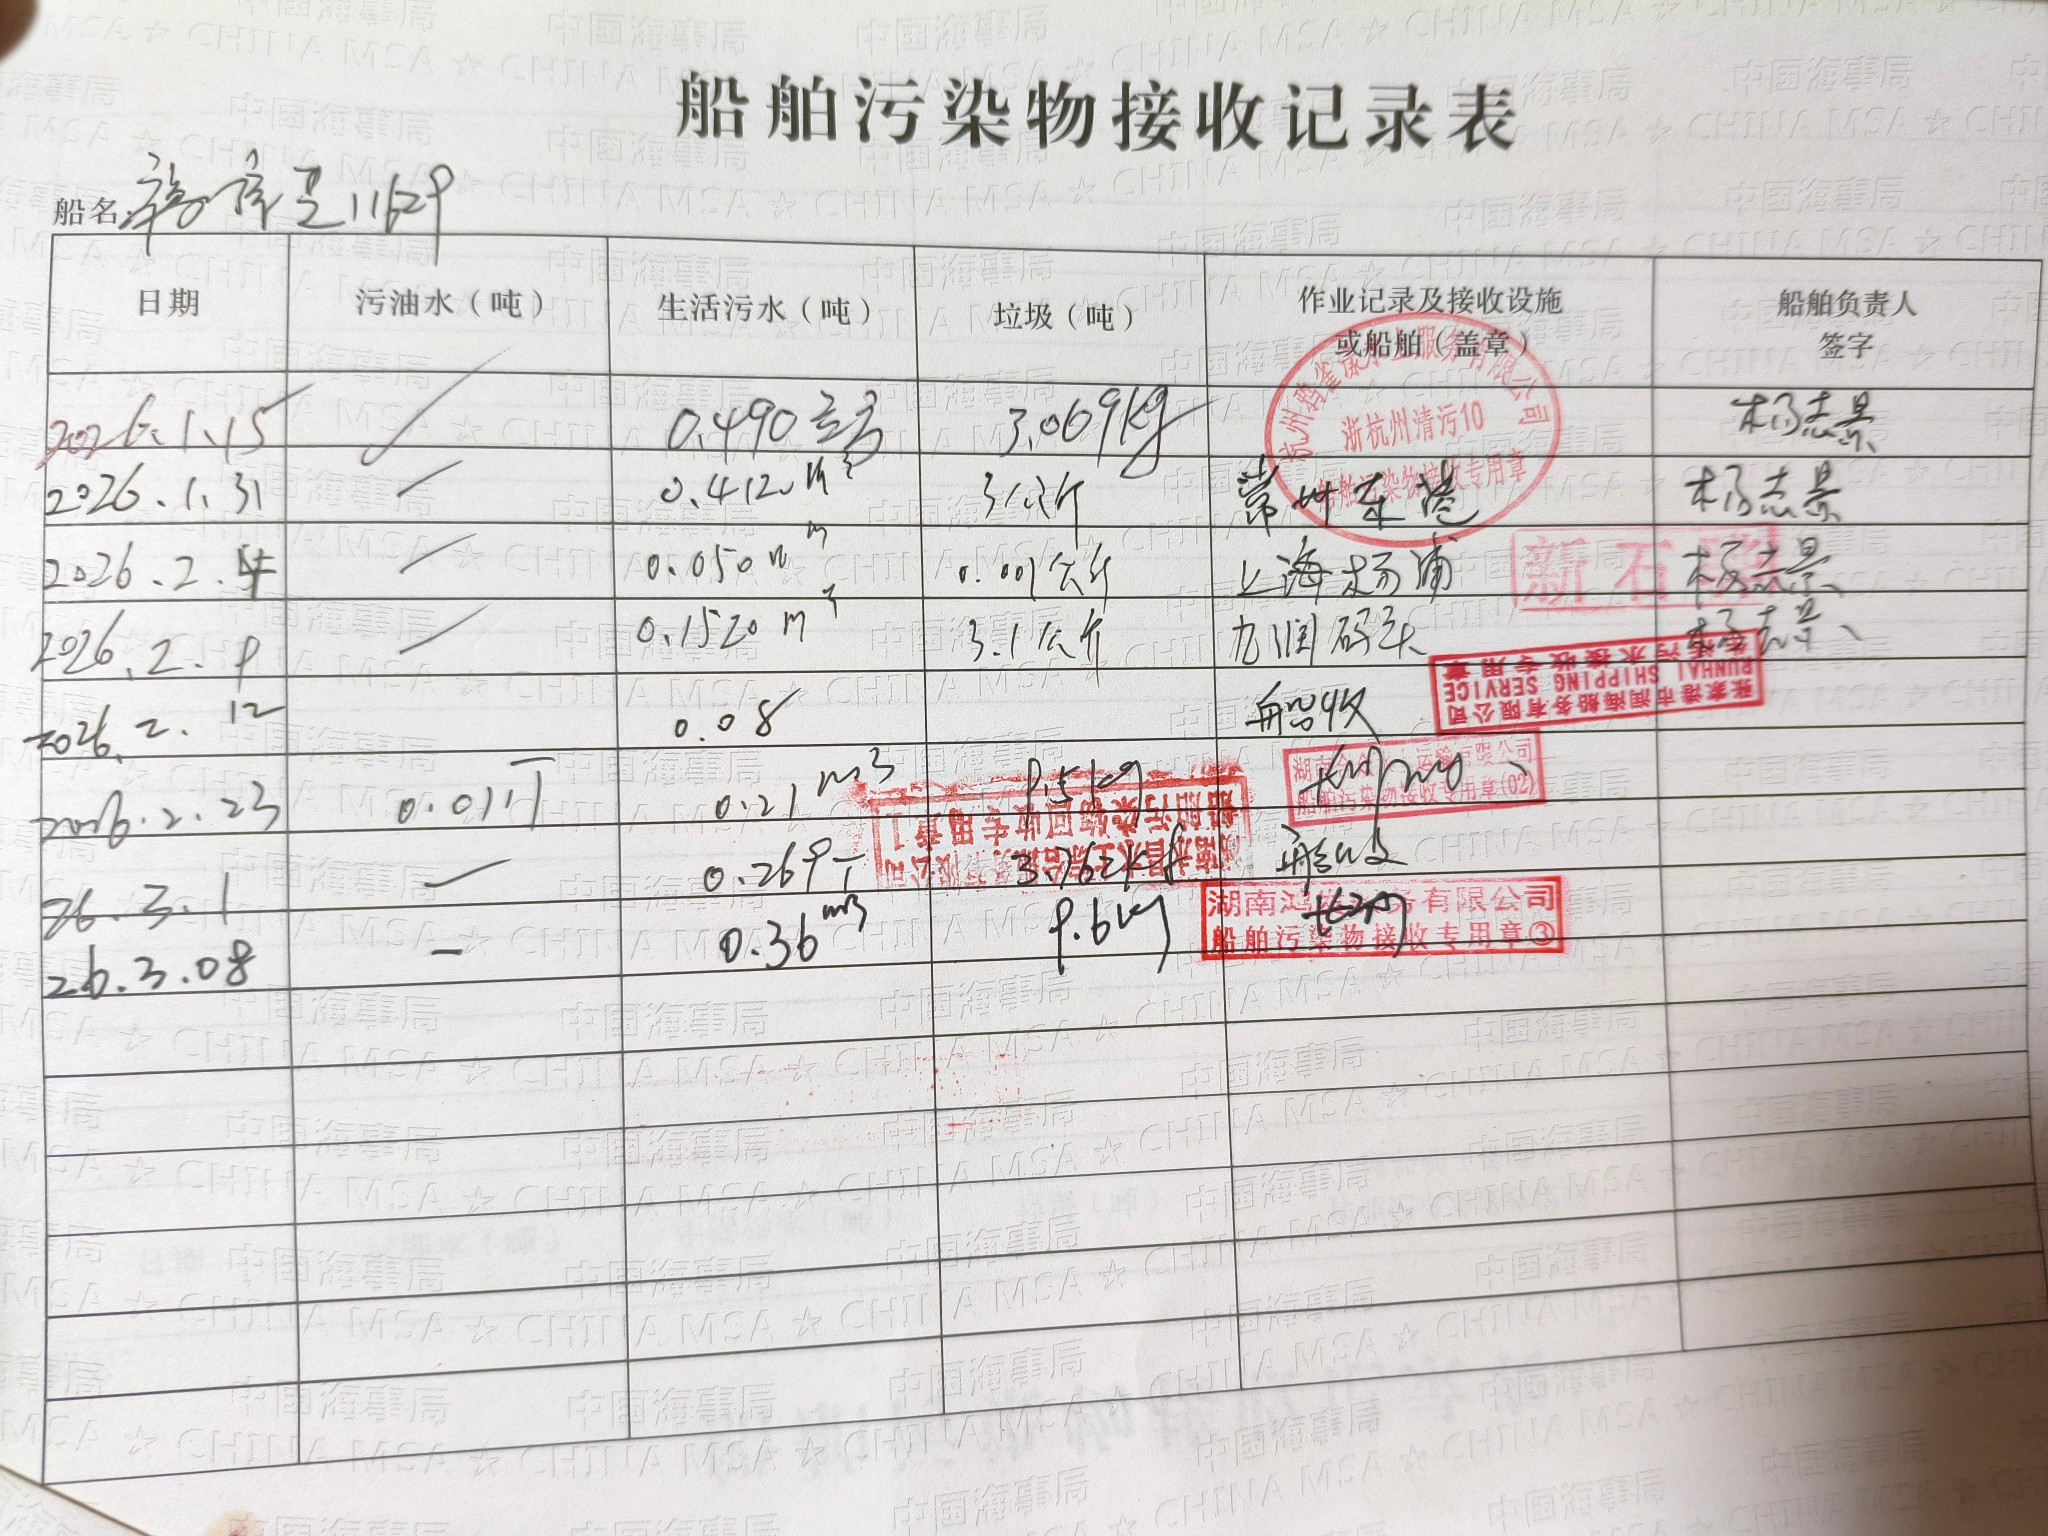 船舶污染物接收记录表
船名: 11629
日期 污油水（吨） 生活污水（吨） 垃圾（吨） 作业记录及接收设施或船舶（盖章） 船舶负责人签字
2026.1.15 / 0.490立方 3.069kg 杨志景
杭州 水上服务有限公司
浙杭州清污10
船舶污染物接收专用章
2026.1.31 / 0.4120m³ 3公斤 常州东港 杨志景
2026.2.4 / 0.050m 0.001公斤 上海杨浦 杨志景
新石
2026.2.9 / 0.1520m³ 3.1公斤 九润码头 杨志景
张家港市润海船务有限公司
RUNHAI SHIPPING SERVICE
污水接收专用章
2026.2.12 0.08 船收
2026.2.23 0.01T 0.21m3 9.5kg
湖南 运输有限公司
船舶污染物接收专用章(02)
26.3.1 — 0.269T 船收
有限公司
船舶污染物回收专用章1
26.3.08 — 0.36m3 9.6kg
湖南鸿 务有限公司
船舶污染物接收专用章③
中国海事局
CHINA MSA